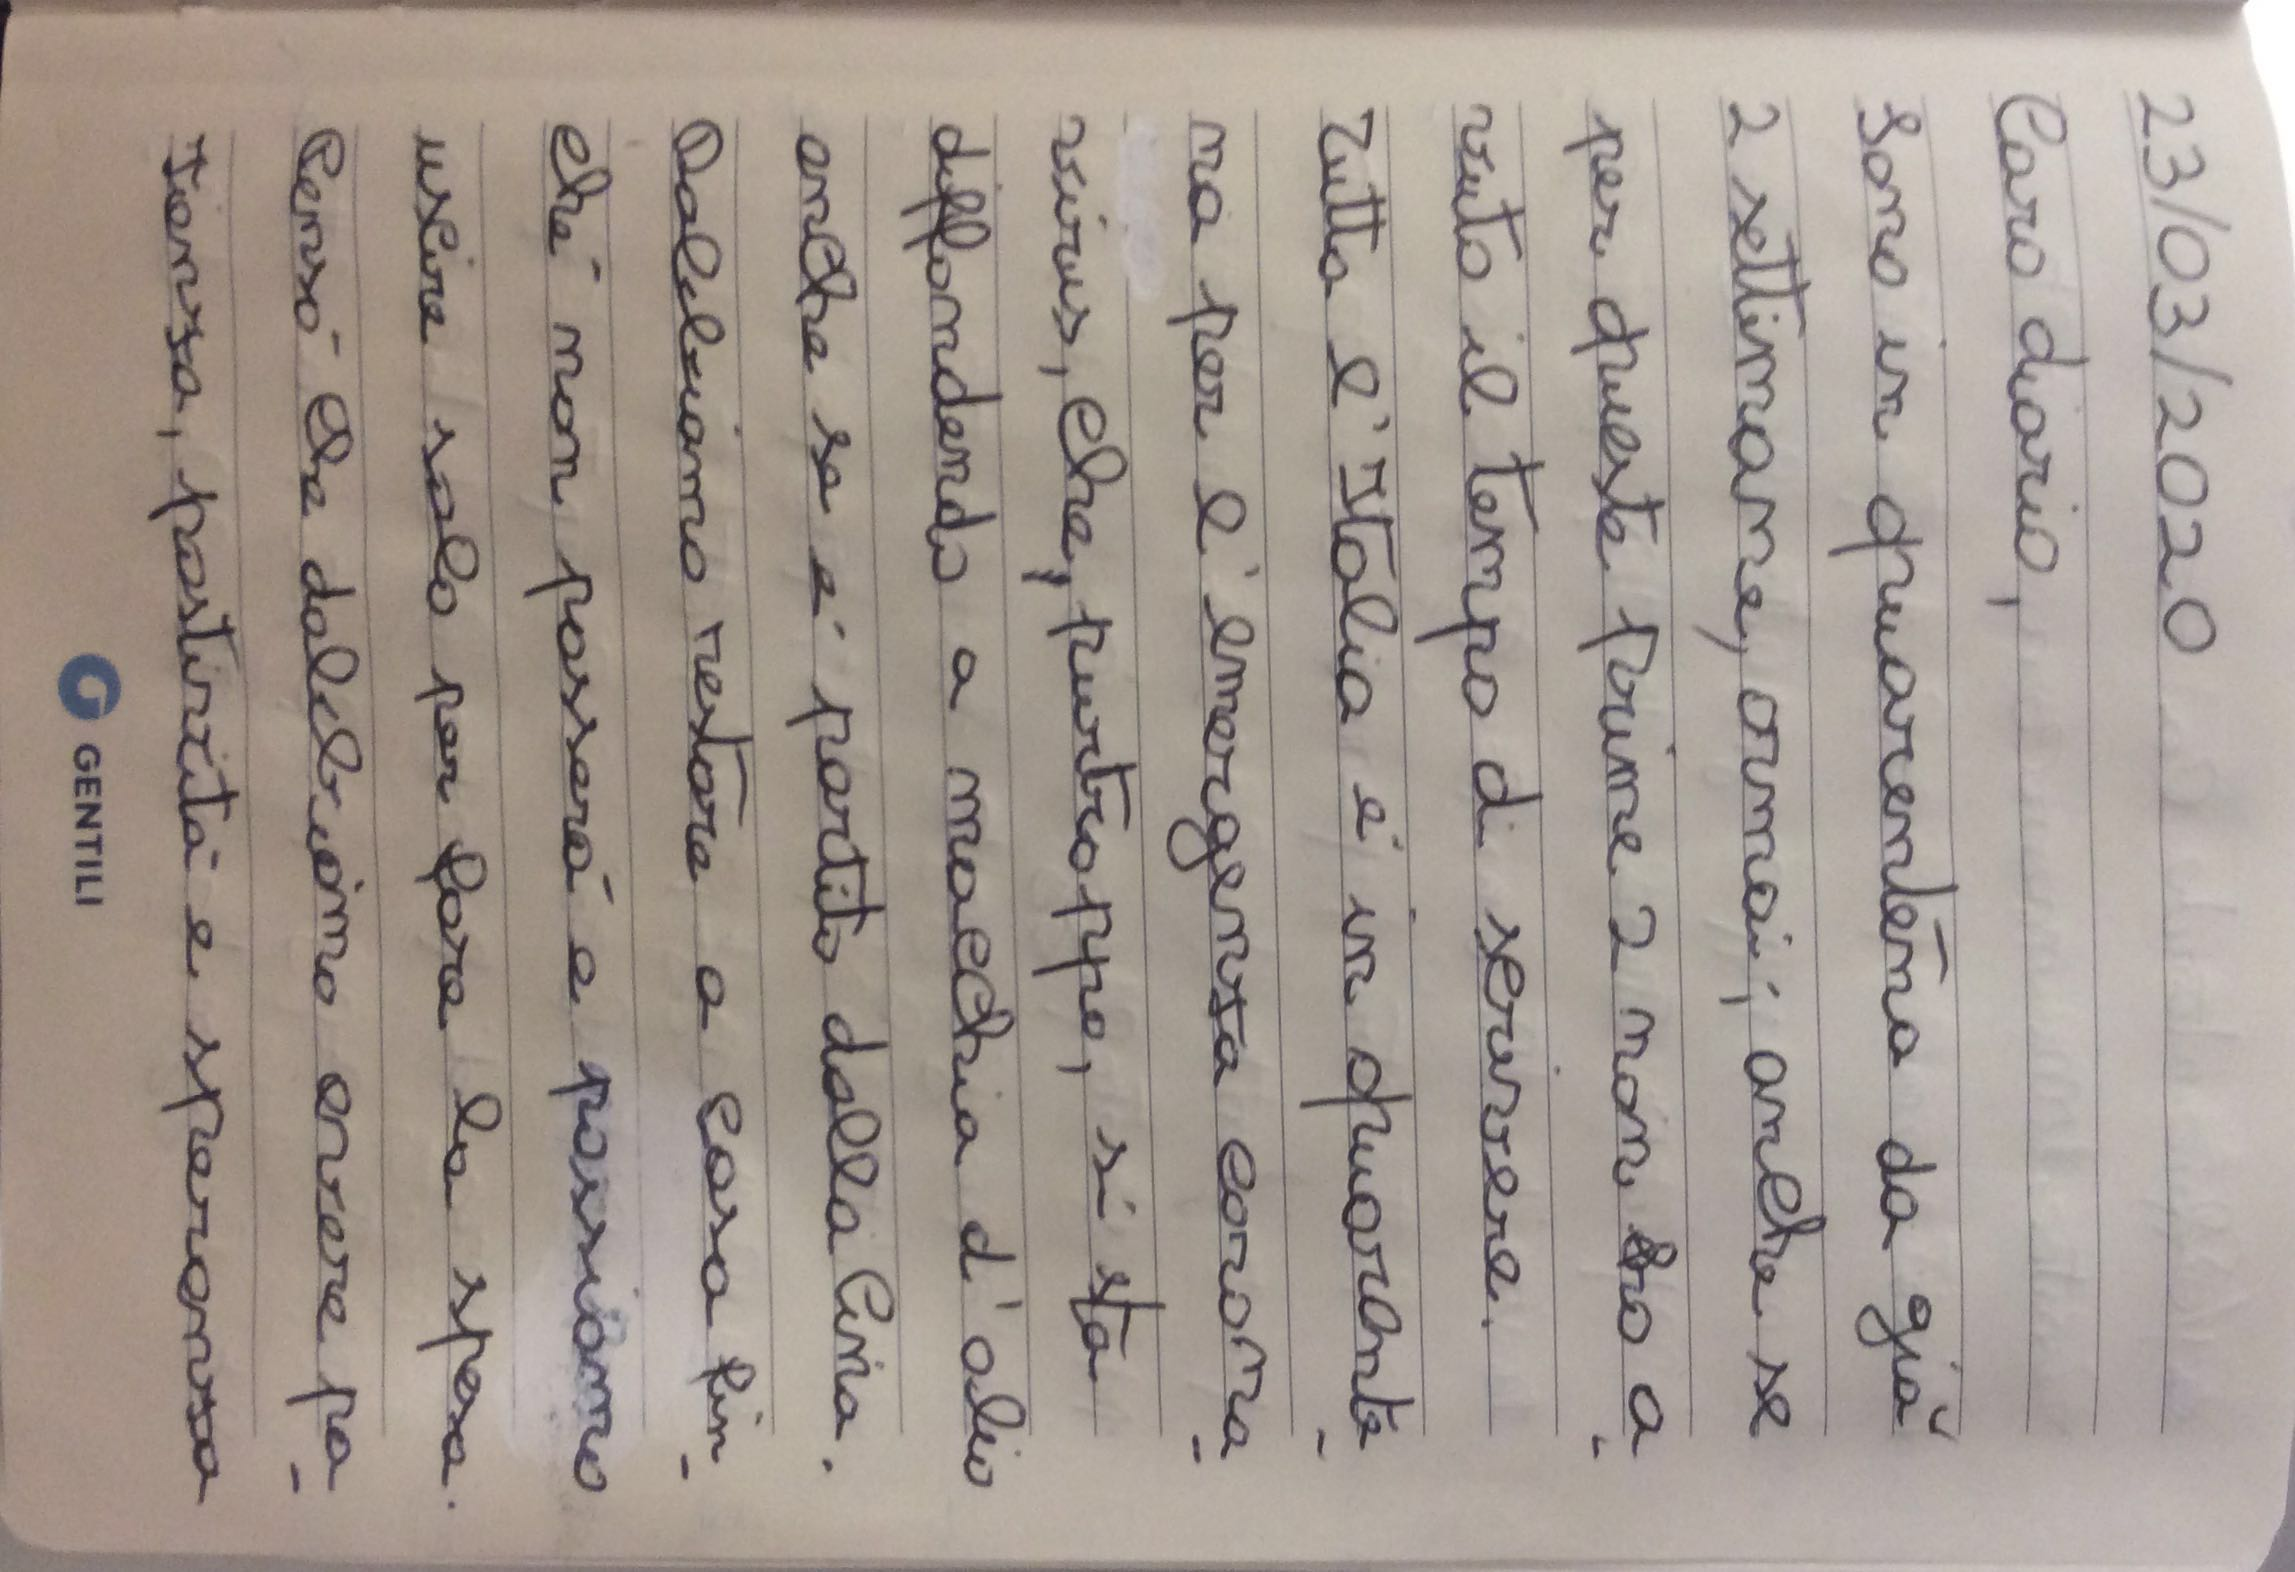 23/03/2020
Caro diario,
Sono in quarentena da già
2 settimane, ormai; anche se
per queste prime 2 non ho a-
vuto il tempo di scrivere.
Tutta l'Italia è in quarante-
na per l'emergenza corona-
virus, che, purtroppo, si sta
diffondendo a macchia d'olio
anche se è partito dalla Cina.
Dobbiamo restare a casa fin-
ché non passerà e possiamo
uscire solo per fare la spesa.
Penso che dobbiamo avere pa-
zienza, positività e sparanza
GENTILI